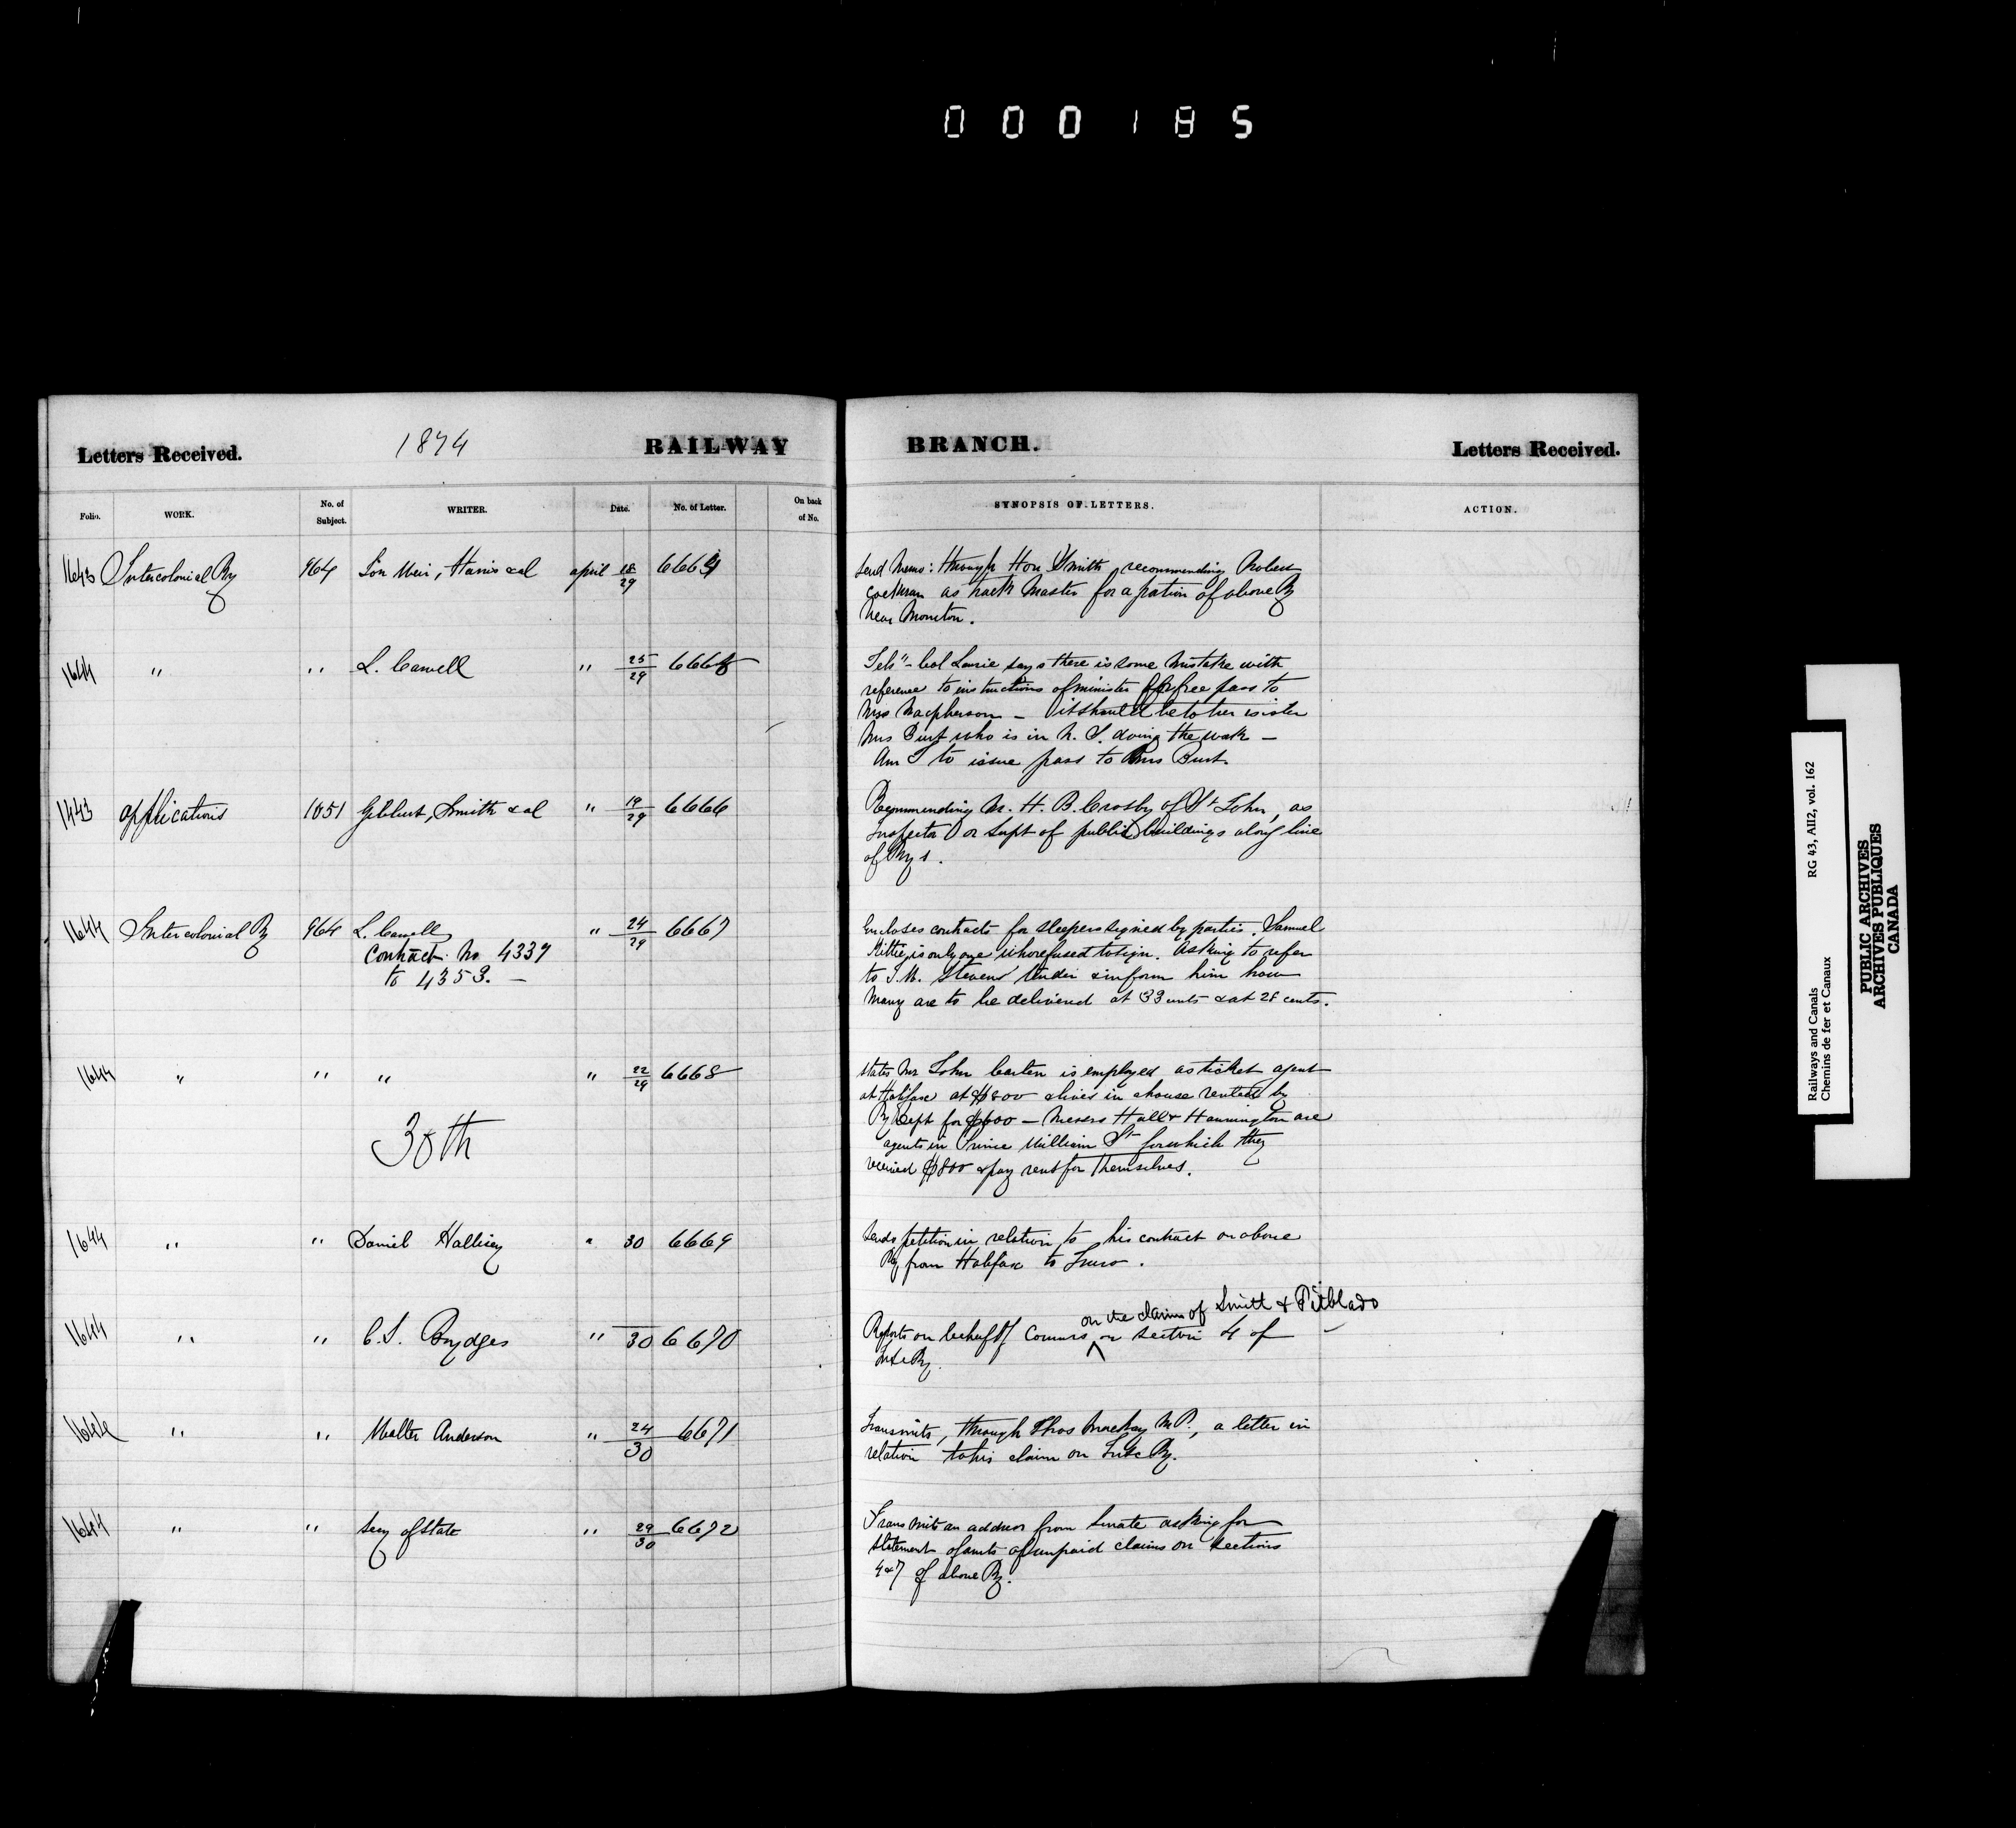 000185
Letters Received. 1874 RAILWAY BRANCH. Letters Received.
Folio. WORK. No. of Subject. WRITER. Date. No. of Letter. On back of No. SYNOPSIS OF LETTERS. ACTION.
1643 Intercolonial Ry 964 Harris & al april 28/29 6664
Send Memo: through Hon Smith, recommending Robert
Cochran as track Master for a portion of above Ry
near Moncton.
1644 " " L. Carvell " 25/29 6665
Tel" - Col Laurie says there is some mistake with
reference to instructions of minister for free pass to
Miss Macpherson - it should be to her sister
Mrs Birt who is in N. S. doing the work -
Am I to issue pass to Mrs Burt.
1443 applications 1051 Gilbert, Smith & al " 19/29 6666
Recommending Mr. H. B. Crosby of St John, as
Inspector or Supt of public buildings along line
of Rys.
1644 Intercolonial Ry 964 L. Carvell " 24/29 6667
Contract No 4337
to 4353. -
Encloses contracts for sleepers signed by parties. Samuel
is only one who refused to sign. Asking to refer
to Stevens' tender & inform him how
many are to be delivered at 33 cents & at 28 cents.
1644 " " " " 22/29 6668
States Mr John is employed as ticket agent
at Halifax at $800 & lives in a house rented by
Ry Dept for $600 - Messrs Hall & Hannington are
agents in Prince William St for which they
received $800 & pay rent for themselves.
30th
1644 " " Daniel Hallisey " 30 6669
Sends petition in relation to his contract on above
Ry from Halifax to Truro.
1644 " " C. J. Brydges " 30 6670
on the claim of Smith & Pitblado
Reports on behalf of Commrs ^ on section 4 of
Intc Ry.
1644 " " Walter Anderson " 24/30 6671
Transmits, through Thos Mackay M.P., a letter in
relation to his claim on Intc Ry.
1644 " " Secy of State " 29/30 6672
Transmits an address from Senate asking for
statement of amts of unpaid claims on sections
4 & 7 of above Ry.
Railways and Canals RG 43, AII2, vol. 162
Chemins de fer et Canaux
PUBLIC ARCHIVES
ARCHIVES PUBLIQUES
CANADA